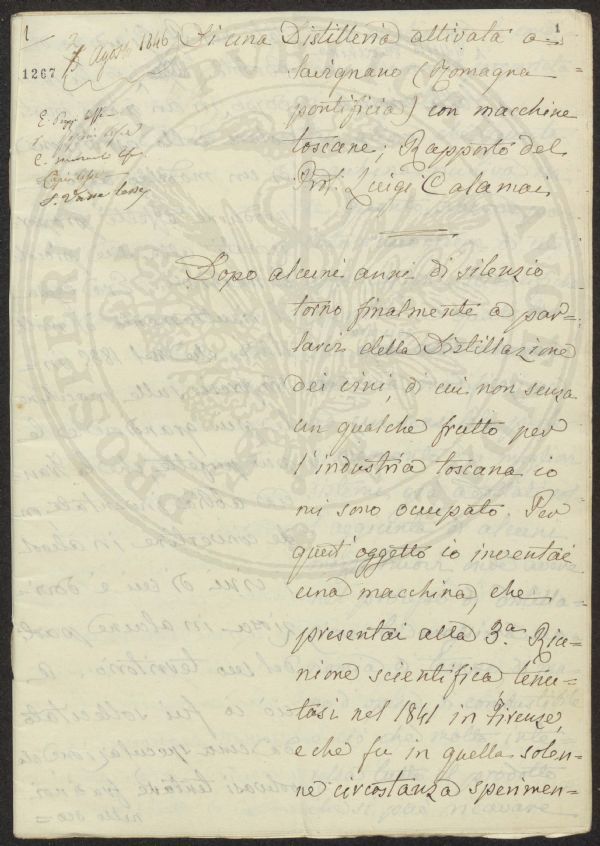 1
1
1267
2 Agosto 1846
Di una Distilleria attivata a
Savignano (Romagna
pontificia) con macchine
toscane; Rapporto del
Prof. Luigi Calamai
Dopo alcuni anni di silenzio
torno finalmente a par=
larvi della Distillazione
dei vini, di cui non senza
un qualche frutto per
l'industria toscana io
mi sono occupato. Per
quest'oggetto io inventai
una macchina, che
presentai alla 3.a Riu=
nione scientifica tenu=
tasi nel 1841 in Firenze,
e che fu in quella solen=
ne circostanza sperimen=